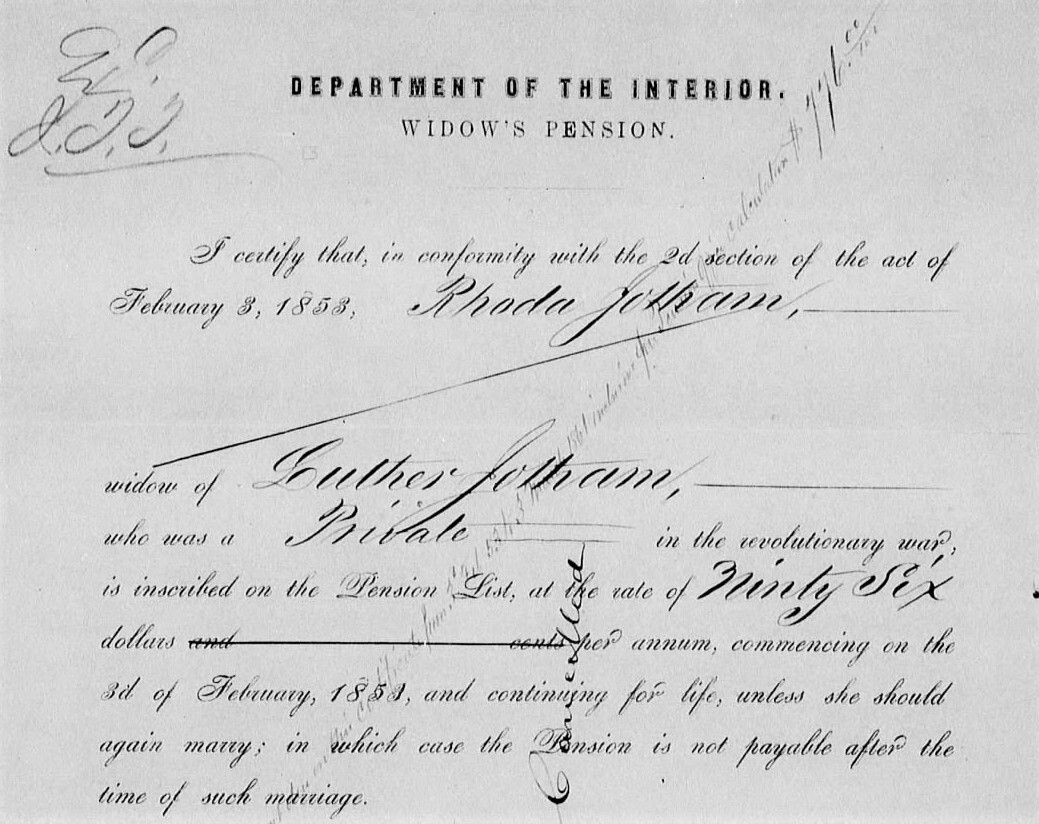 DEPARTMENT OF THE INTERIOR.
WIDOW'S PENSION.
I certify that, in conformity with the 2d section of the act of
February 3, 1853, Rhoda Jotham,
widow of Luther Jotham,
who was a Private in the revolutionary war,
is inscribed on the Pension List, at the rate of Ninty Six
dollars and cents per annum, commencing on the
3d of February, 1853, and continuing for life, unless she should
again marry; in which case the Pension is not payable after the
time of such marriage.
Cancelled